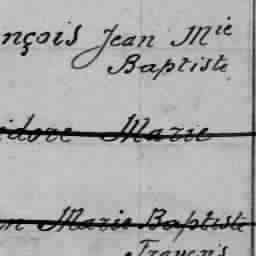 nçois Jean Mie
Baptiste
idore Marie
n Marie Baptiste
François